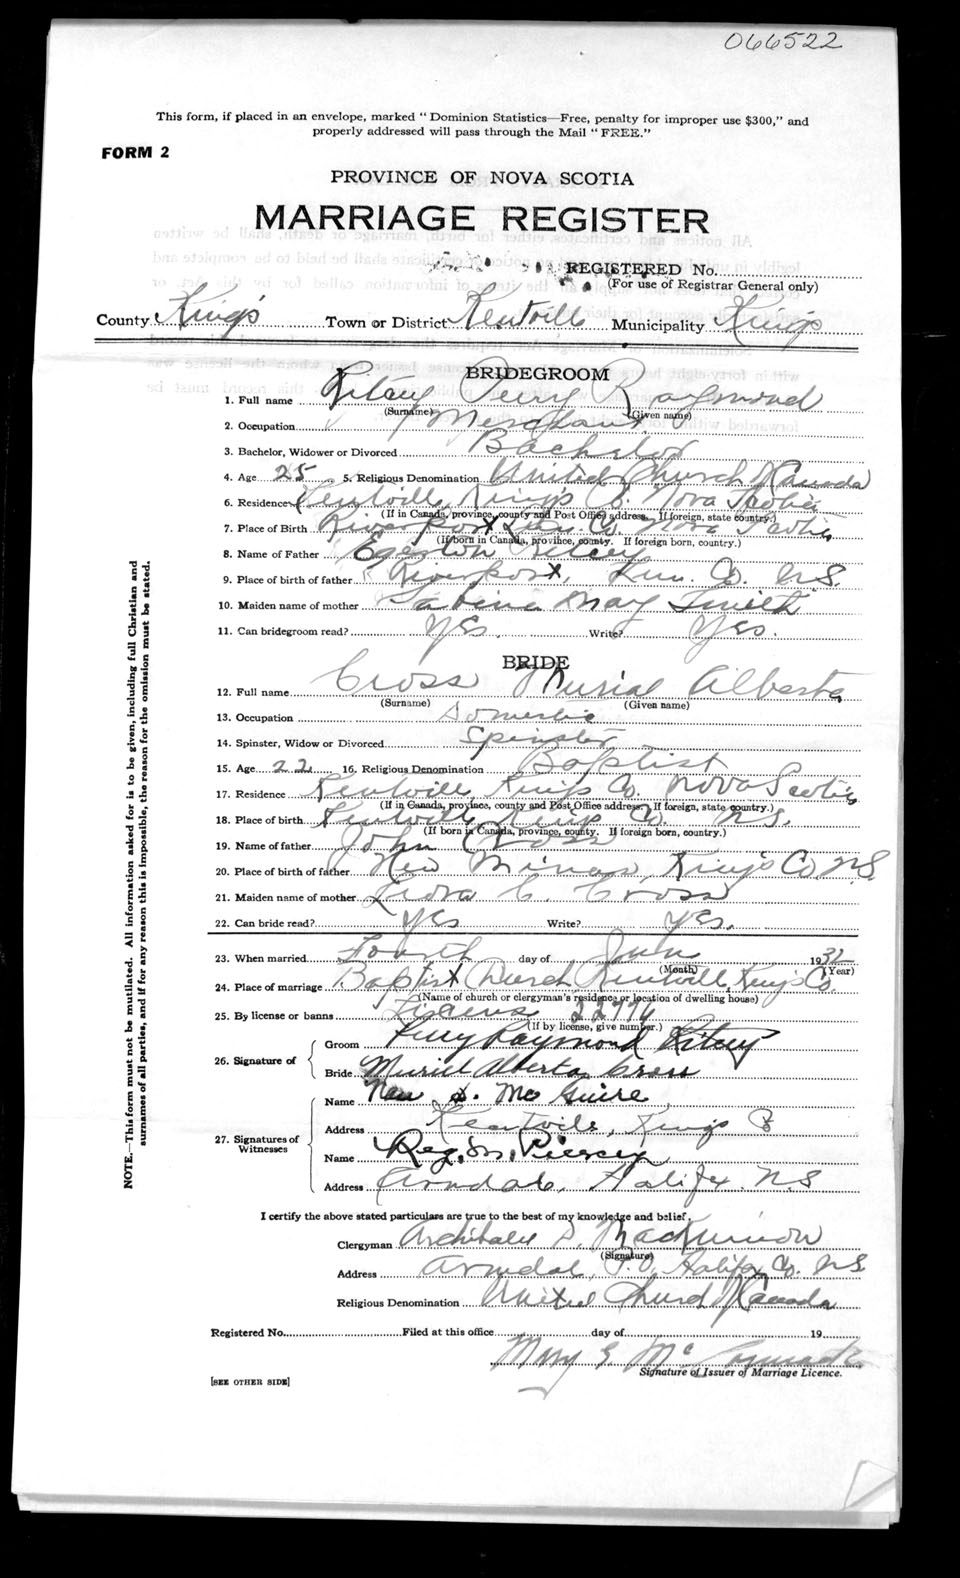 066522
This form, if placed in an envelope, marked "Dominion Statistics—Free, penalty for improper use $300," and
properly addressed will pass through the Mail "FREE."
FORM 2
PROVINCE OF NOVA SCOTIA
MARRIAGE REGISTER
REGISTERED No.
(For use of Registrar General only)
County King's Town or District Kentville Municipality Kings
BRIDEGROOM
1. Full name Ritcey Perry Raymond
(Surname) (Given name)
2. Occupation Merchant
3. Bachelor, Widower or Divorced Bachelor
4. Age 25 5. Religious Denomination United Church of Canada
6. Residence Kentville, Kings Co. Nova Scotia
(If in Canada, province, county and Post Office address. If foreign, state country.)
7. Place of Birth Riverport Lun. Co. Nova Scotia
(If born in Canada, province, county. If foreign born, country.)
8. Name of Father Egerton Ritcey
9. Place of birth of father Riverport, Lun. Co. N.S.
10. Maiden name of mother May Smith
11. Can bridegroom read? Yes. Write? Yes.
BRIDE
12. Full name Cross Murial Alberta
(Surname) (Given name)
13. Occupation Domestic
14. Spinster, Widow or Divorced Spinster
15. Age 22 16. Religious Denomination Baptist
17. Residence Kentville, Kings Co. Nova Scotia
(If in Canada, province, county and Post Office address. If foreign, state country.)
18. Place of birth Kentville Kings Co. N.S.
(If born in Canada, province, county. If foreign born, country.)
19. Name of father John Cross
20. Place of birth of father New Minas, King's Co. N.S.
21. Maiden name of mother C. Cross
22. Can bride read? Yes Write? Yes.
23. When married Fourth day of June 1932
(Month) (Year)
24. Place of marriage Baptist Church Kentville, King's Co.
(Name of church or clergyman's residence or location of dwelling house)
25. By license or banns License 22776
(If by license, give number.)
26. Signature of
Groom Perry Raymond Ritcey
Bride Muriel Alberta Cross
27. Signatures of Witnesses
Name S. McGuire
Address Kentville, Kings Co
Name Reg. M. Piercey
Address Armdale, Halifax N.S
I certify the above stated particulars are true to the best of my knowledge and belief.
Clergyman Archibald D. MacKinnon
(Signature)
Address Armdale, P.O. Halifax Co. N.S.
Religious Denomination United Church of Canada
Registered No. Filed at this office day of 19
Mary E. Mc
Signature of Issuer of Marriage Licence.
[SEE OTHER SIDE]
NOTE.—This form must not be mutilated. All information asked for is to be given, including full Christian and
surnames of all parties, and if for any reason this is impossible, the reason for the omission must be stated.